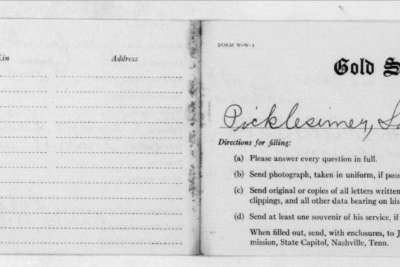 kin
Address
FORM W-W-1
Gold S
Picklesimer,
Directions for filling:
(a) Please answer every question in full.
(b) Send photograph, taken in uniform, if poss
(c) Send original or copies of all letters written
clippings, and all other data bearing on his
(d) Send at least one souvenir of his service, if
When filled out, send, with enclosures, to J
mission, State Capitol, Nashville, Tenn.